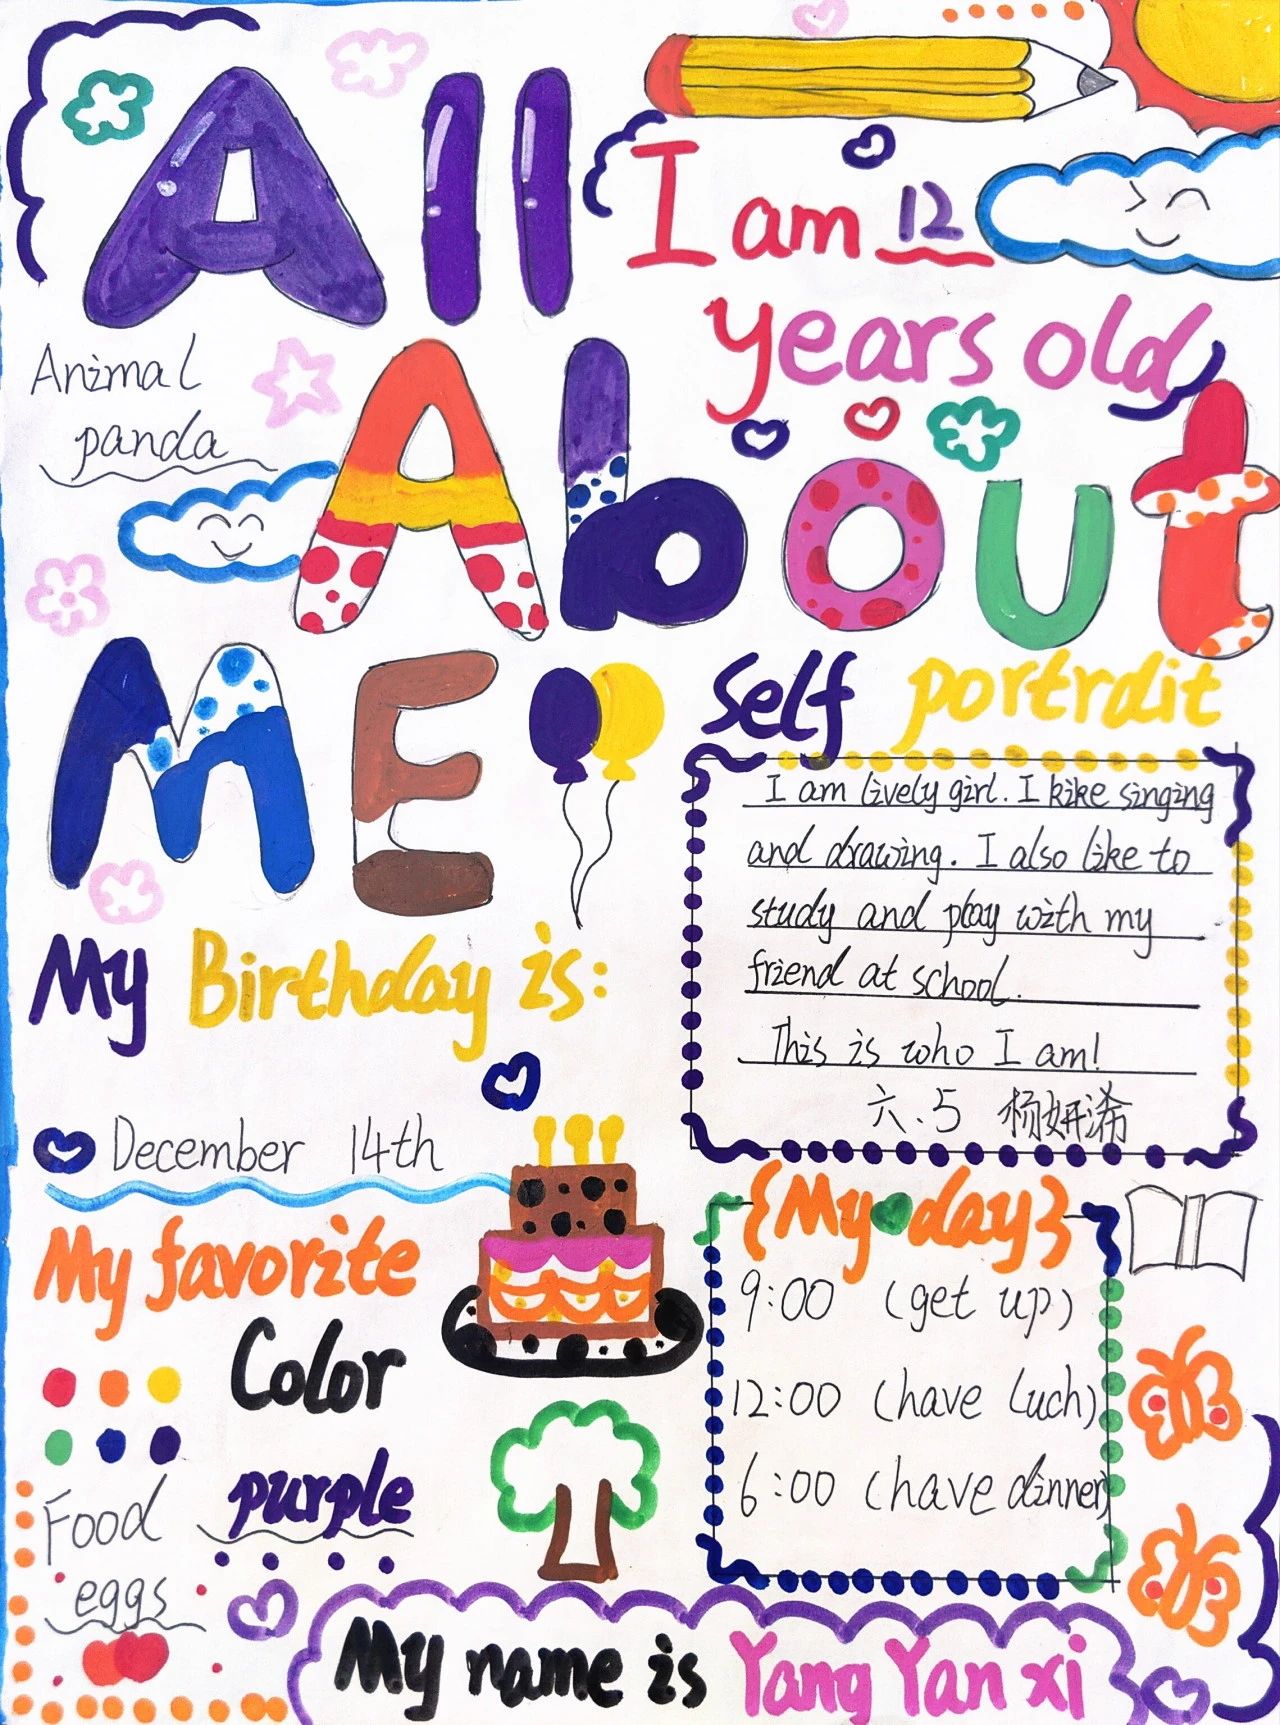 All
I am 12
years old
Animal
panda
About
ME
Self portrait
I am lively girl. I kike singing
and drawing. I also like to
study and play with my
friend at school.
This is who I am!
六.5 杨妍浠
My Birthday is:
December 14th
{My day}
9:00 (get up)
12:00 (have luch)
6:00 (have dinner)
My favorite
Color
purple
Food
eggs
My name is Yang Yan xi